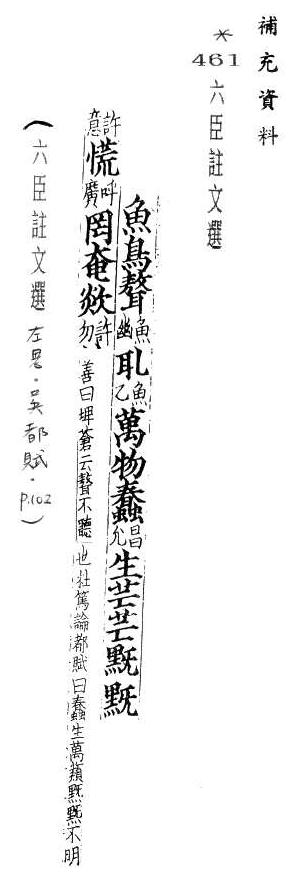 補充資料
*
461
六臣註文選
魚鳥聱魚幽耴魚乙萬物蠢昌允生芒芒黖黖
許意慌呼廣罔奄欻許勿善曰埤蒼云聱不聽也杜篤論都賦曰蠢生萬類黖黖不明
(六臣註文選 左思.吳都賦.p.102)